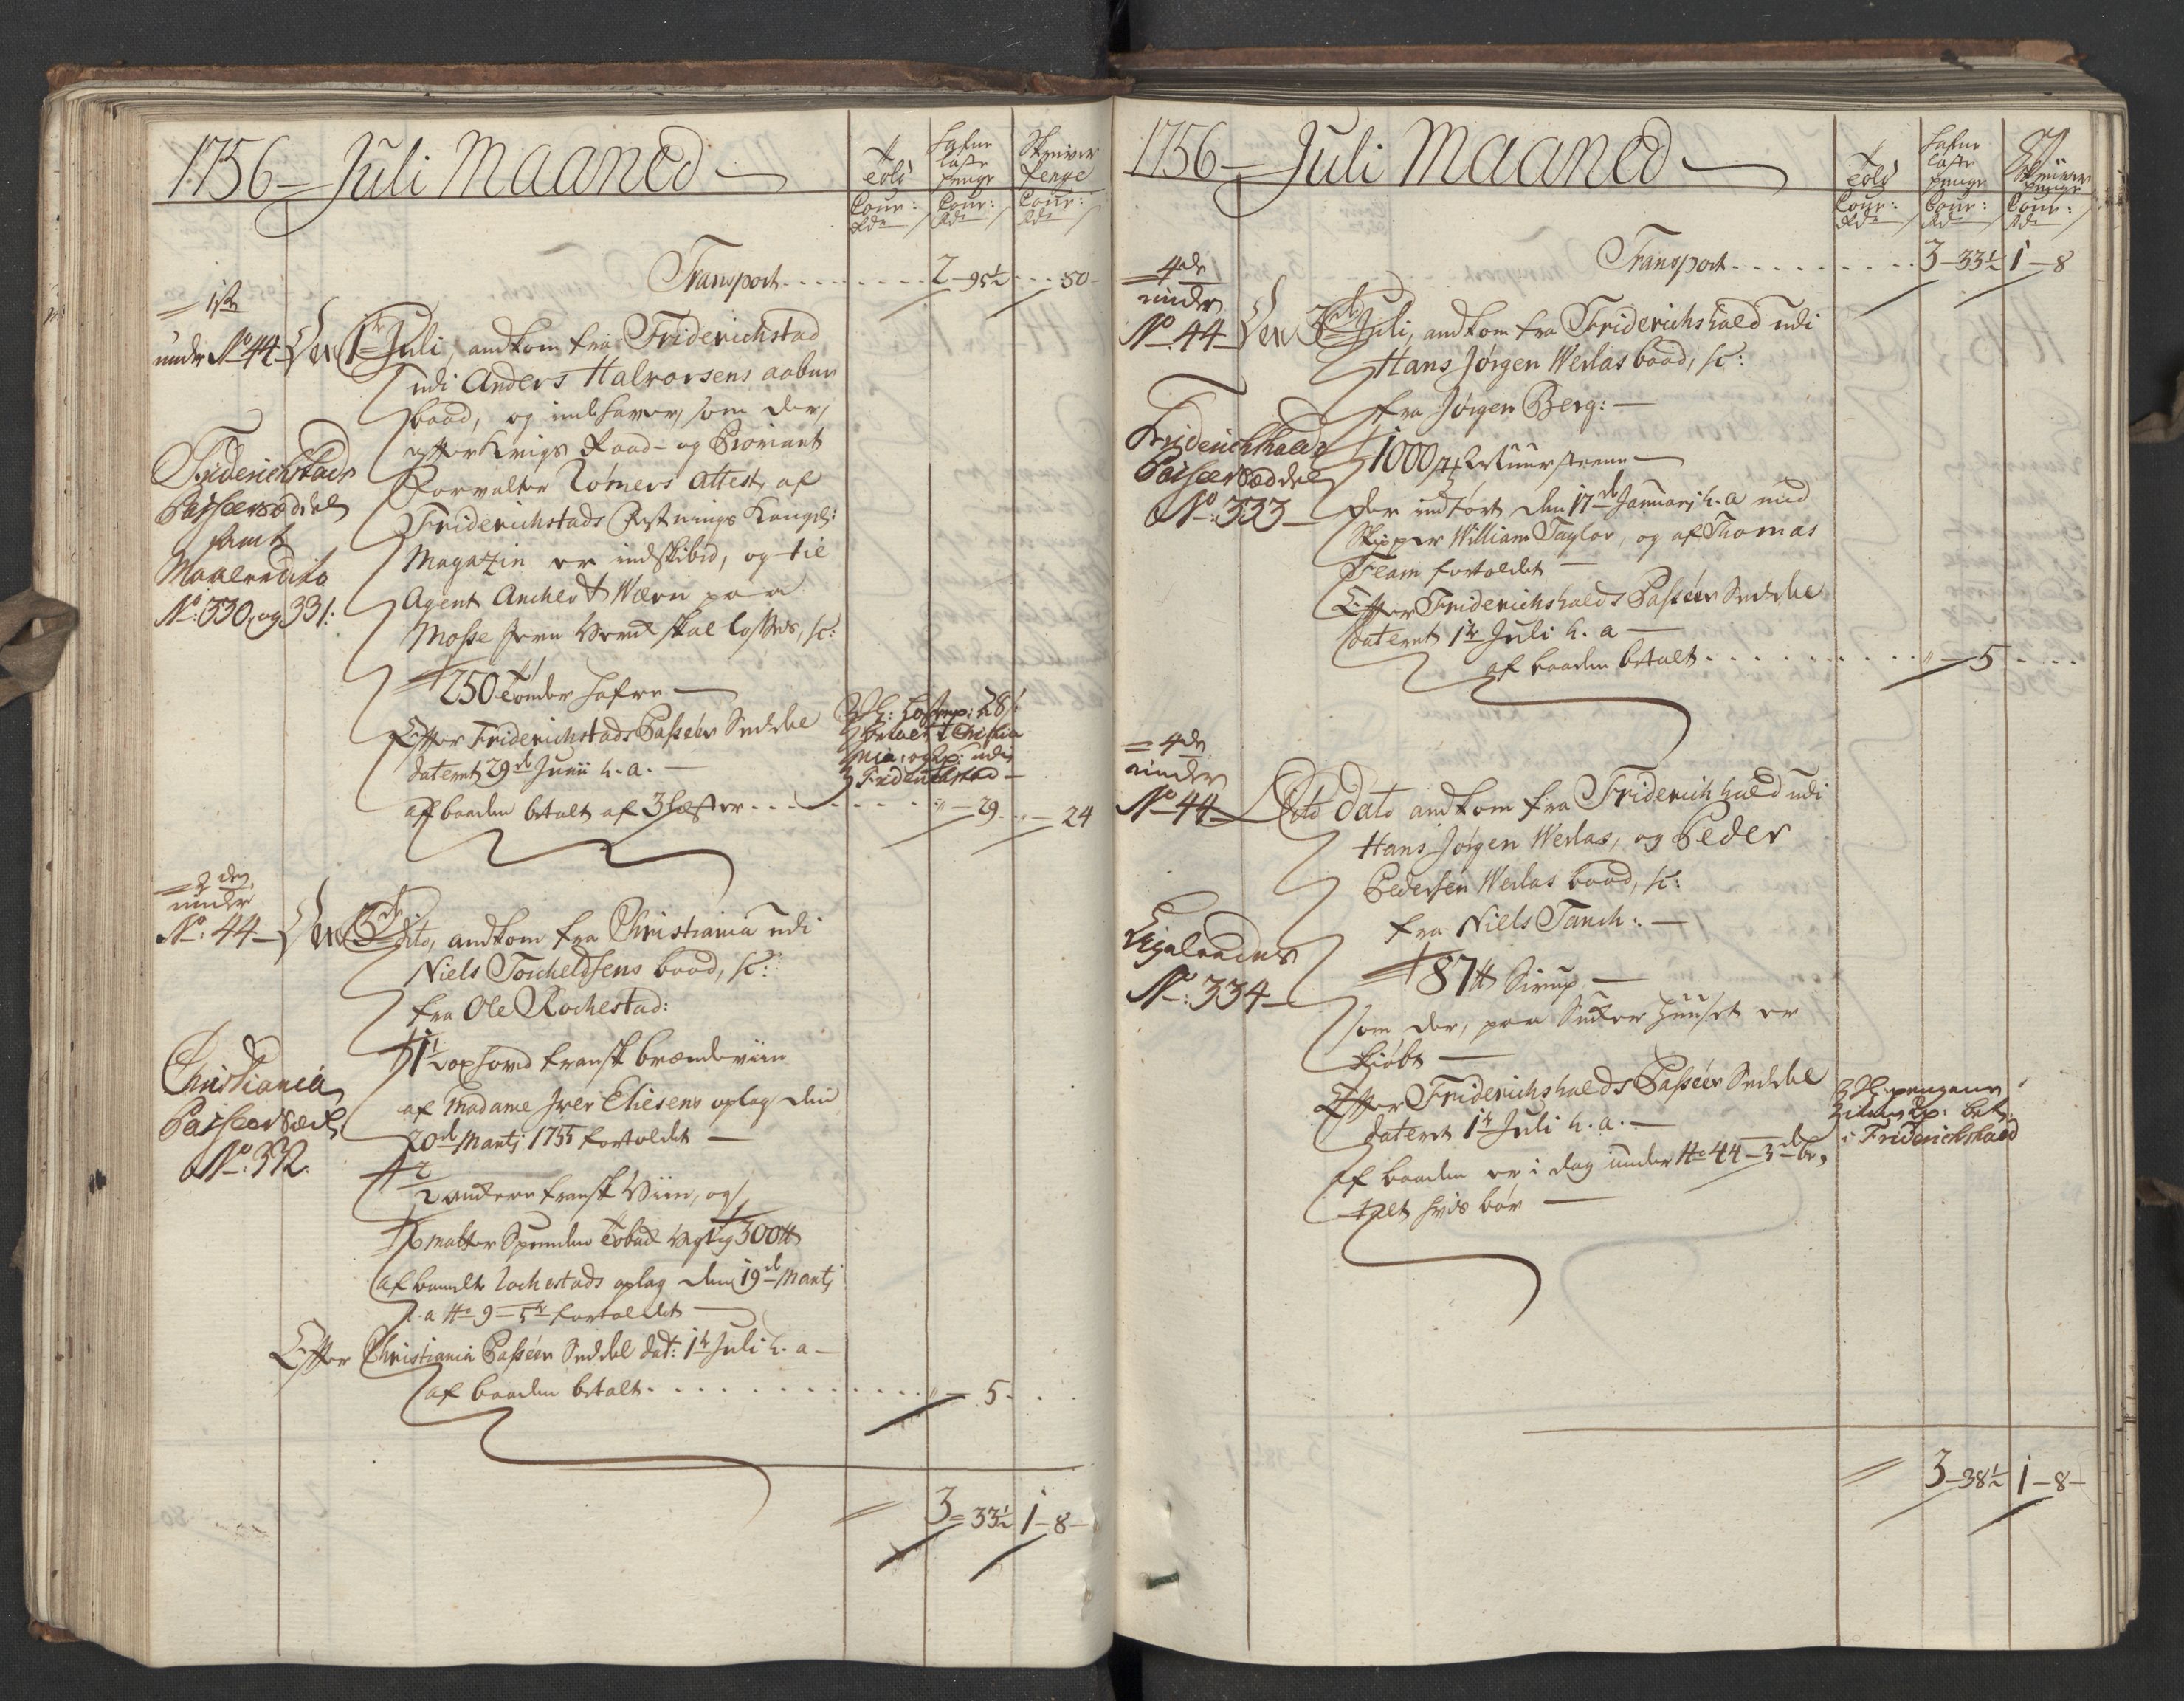 1756 = Juli Maaned
Told
Hafne
laste
penge
Skriver
Penge
Cour:
Rdr
Cour:
Rdr
Cour:
Rdr
Transport 2 - 95 1/2 - 80 -
= 1ste
under No 44 - Den 1te Juli, andkom fra Friderichstad
udi Anders Halvorsens aabne
baad, og indehaver, som der,
efter Krigs Raad- og Proviant
Forvalter Römers Attest, af
Friderichstads Festnings Kongel:
Magazin er indskibed, og til
Agent Ancher & Wærn paa
Mosse Jern Værck skal losses, sc:
Friderichstads
Passeersæddel
samt
No: 330, og 331:
250 Tønder Hafre -
Efter Friderichstads Passéer Seddel
dateret 29de Junii h. a. -
af baaden betalt af 3 Læster - 29 - 24
betalt i Christia
nia, og
Friderichstad -
= 2den
under
No: 44 - Den 3de dito, andkom fra Christiania udi
Niels Torcheldsens baad, sc:
fra Ole Rochestad:
Christiania
Passeersæd.
No: 332:
1 1/2 oxhoved fransk brændeviin
af Madame Iver Eliesens oplag den
20de Martj 1755 fortoldet -
2
2 anckere fransk Viin, og
6 matter Spunden Tobak vegtig 300 ℔
af bemelte Rochestads oplag den 19de Martj
h. a No 9 - 5te fortoldet -
Efter Christiania Passéer Seddel dat: 1te Juli h. a -
af baaden betalt - 5 -
3 = 33 1/2 1 - 8 -
1756 = Juli Maaned
Told
Hafne
laste
penge
Skriver
penge
Cour:
Rdr
Cour:
Rdr
Cour:
Rdr
Transport 3 - 33 1/2 1 - 8
= 4de
under
No 44 - Den 3de Juli, andkom fra Friderichshald udi
Hans Jørgen Werlas baad, sc:
fra Jørgen Berg: -
Friderichshalds
Passeersæddel
No: 333 -
1000 st. Muursteene -
der indført den 17de Januarj h. a med
Skipper William Taylor, og af Thomas
Team fortoldet -
Efter Friderichshalds Passéer Seddel
dateret 1te Juli h. a -
af baaden betalt - 5 -
= 4de
under
No 44 - Dito Dato andkom fra Friderichhald udi
Hans Jørgen Werlas, og Peder
Pedersen Werlas baad, sc:
fra Niels Tanch: -
Ligeledes
No: 334 -
87 ℔ Sirup -
som der, paa Sucker Huuset er
kjøbt -
Efter Friderichshalds Passéer Seddel
dateret 1te Juli h. a. -
af baaden er i dag under No 44 - 3de be,,
talt hvis bør -
bet:
i Friderichshald
3 - 38 1/2 1 - 8 -